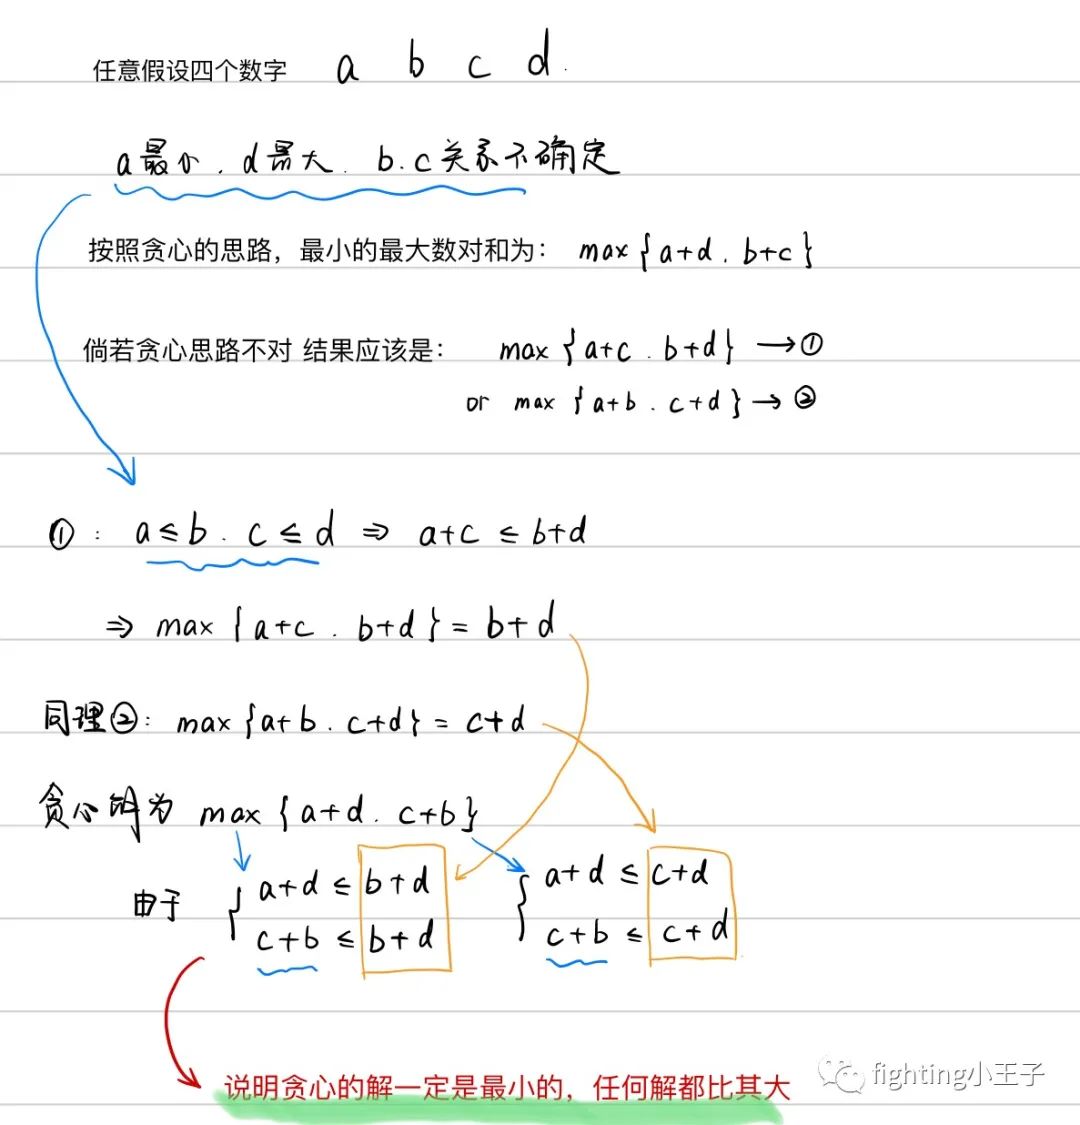 任意假设四个数字 a b c d.
a最小. d最大. b.c关系不确定
按照贪心的思路，最小的最大数对和为： max{a+d . b+c}
倘若贪心思路不对 结果应该是： max {a+c . b+d} → ①
or max {a+b . c+d} → ②
①： a≤b . c≤d ⇒ a+c ≤ b+d
⇒ max {a+c . b+d} = b+d
同理②： max{a+b . c+d} = c+d
贪心解为 max {a+d . c+b}
由于 { a+d ≤ b+d { a+d ≤ c+d
c+b ≤ b+d c+b ≤ c+d
说明贪心的解一定是最小的，任何解都比其大
fighting小王子